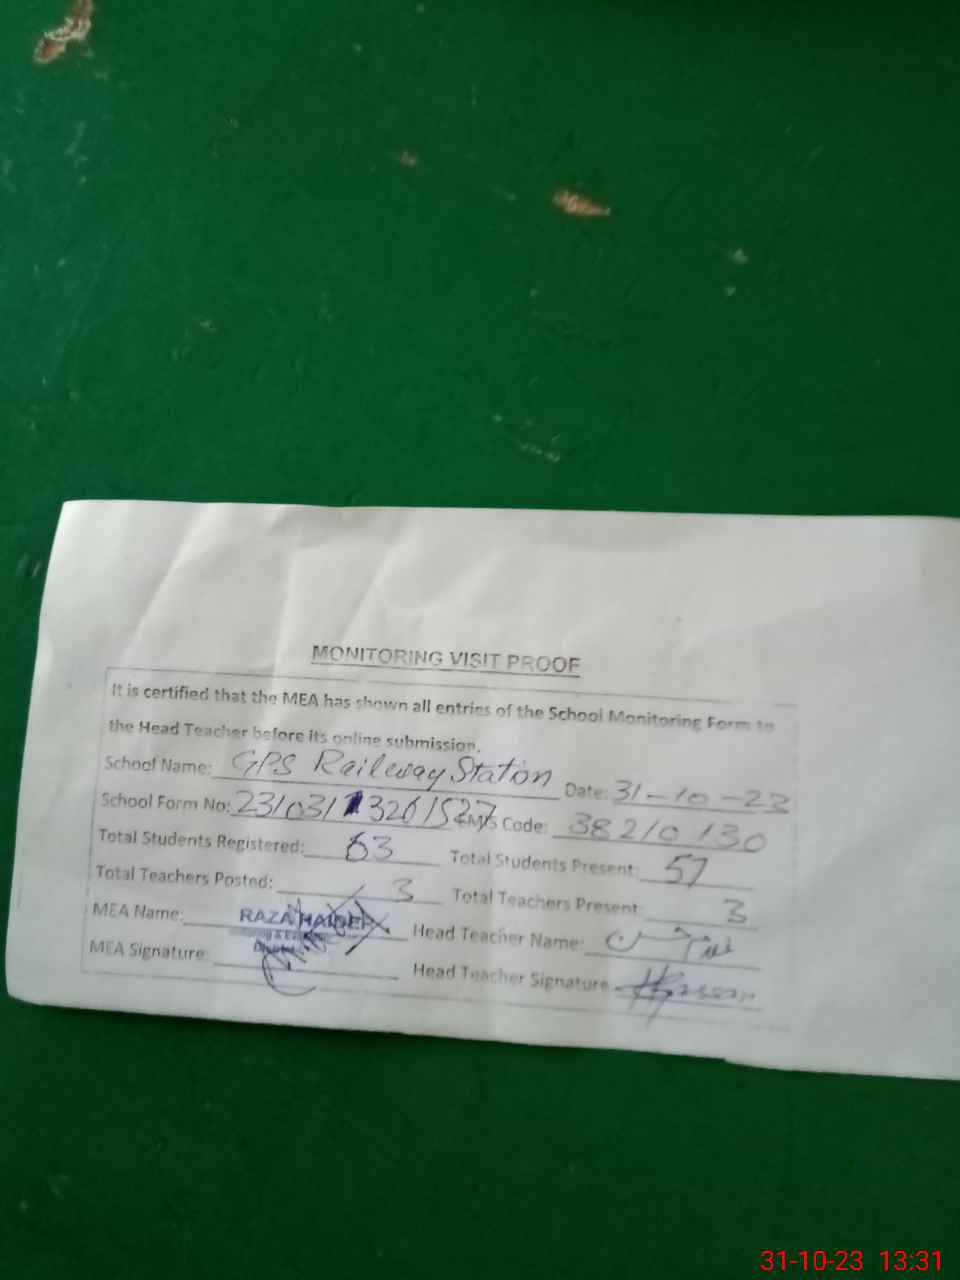 MONITORING VISIT PROOF
It is certified that the MEA has shown all entries of the School Monitoring Form to
the Head Teacher before its online submission.
School Name: GPS Railway Station Date: 31-10-23
School Form No: EMIS Code: 38210130
Total Students Registered: 63 Total Students Present: 57
Total Teachers Posted: 3 Total Teachers Present: 3
MEA Name: RAZA HAIDER Head Teacher Name:
MEA Signature: Head Teacher Signature Hassan
31-10-23 13:31